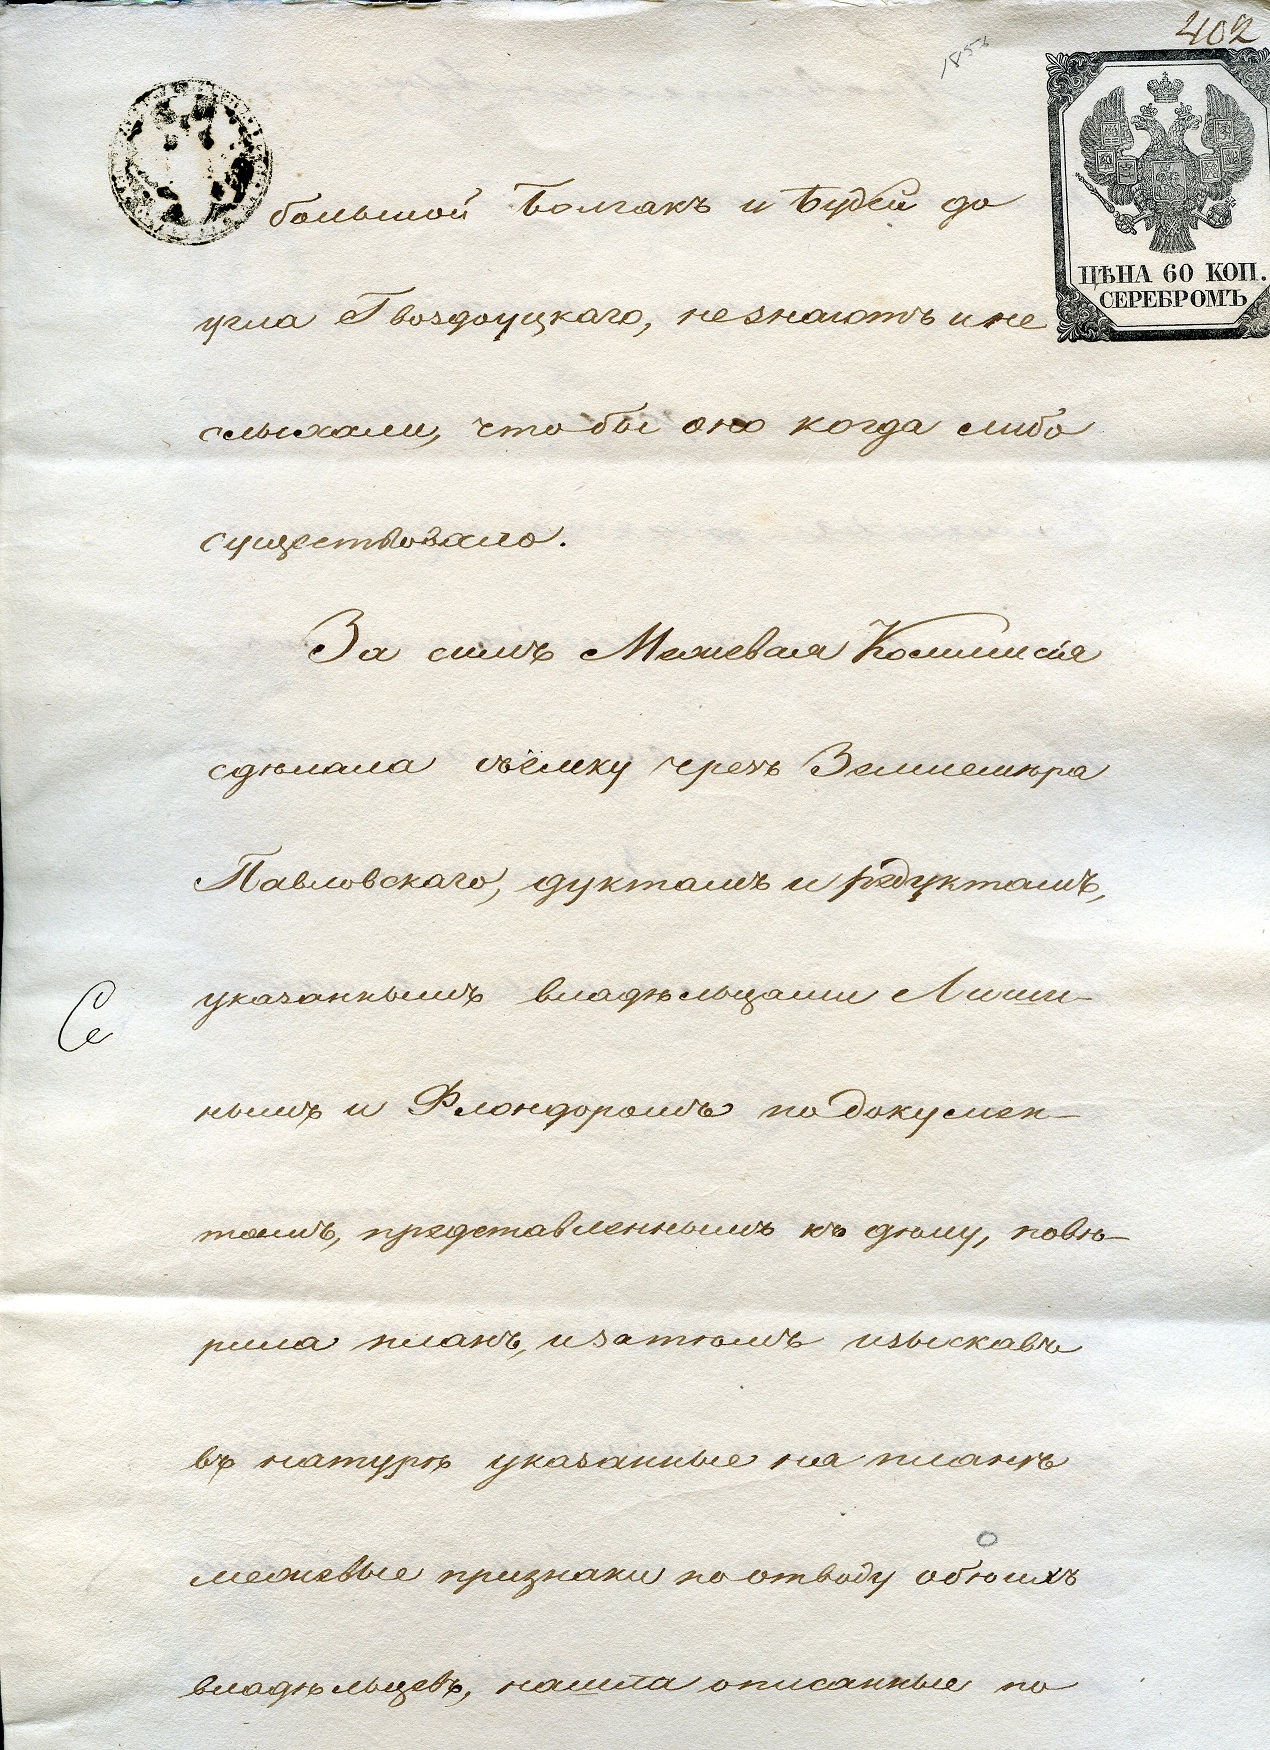 402
1853
ЦѢНА 60 КОП.
СЕРЕБРОМЪ
большой Болгакъ и Будей до
угла Гвоздоуцкаго, не знаютъ и не
слыхали, чтобы оно когда либо
существовало.
За симъ Межевая Коммисія
сдѣлала съёмку чрезъ Землемѣра
Павловскаго, дуктамъ и редуктамъ,
указаннымъ владѣльцами Лиши-
нымъ и Флондоромъ по докумен-
тамъ, представленнымъ къ дѣлу, повѣ-
рила планъ, и затѣмъ изыскавъ
въ натурѣ указанные на планѣ
межевые признаки по отводу обѣихъ
владѣльцевъ, нашла описанные по